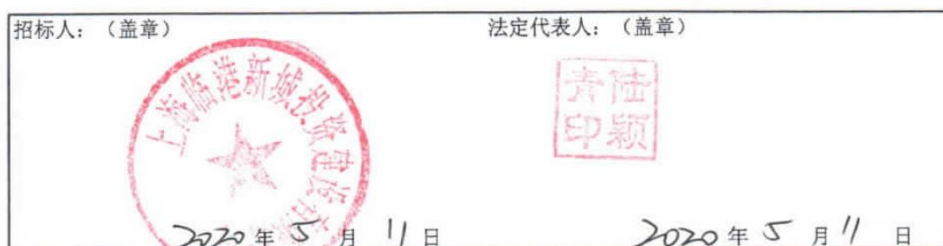 招标人：（盖章）
法定代表人：（盖章）
上海临港新城投资建设有
陆颖青印
2020年5月11日
2020年5月11日